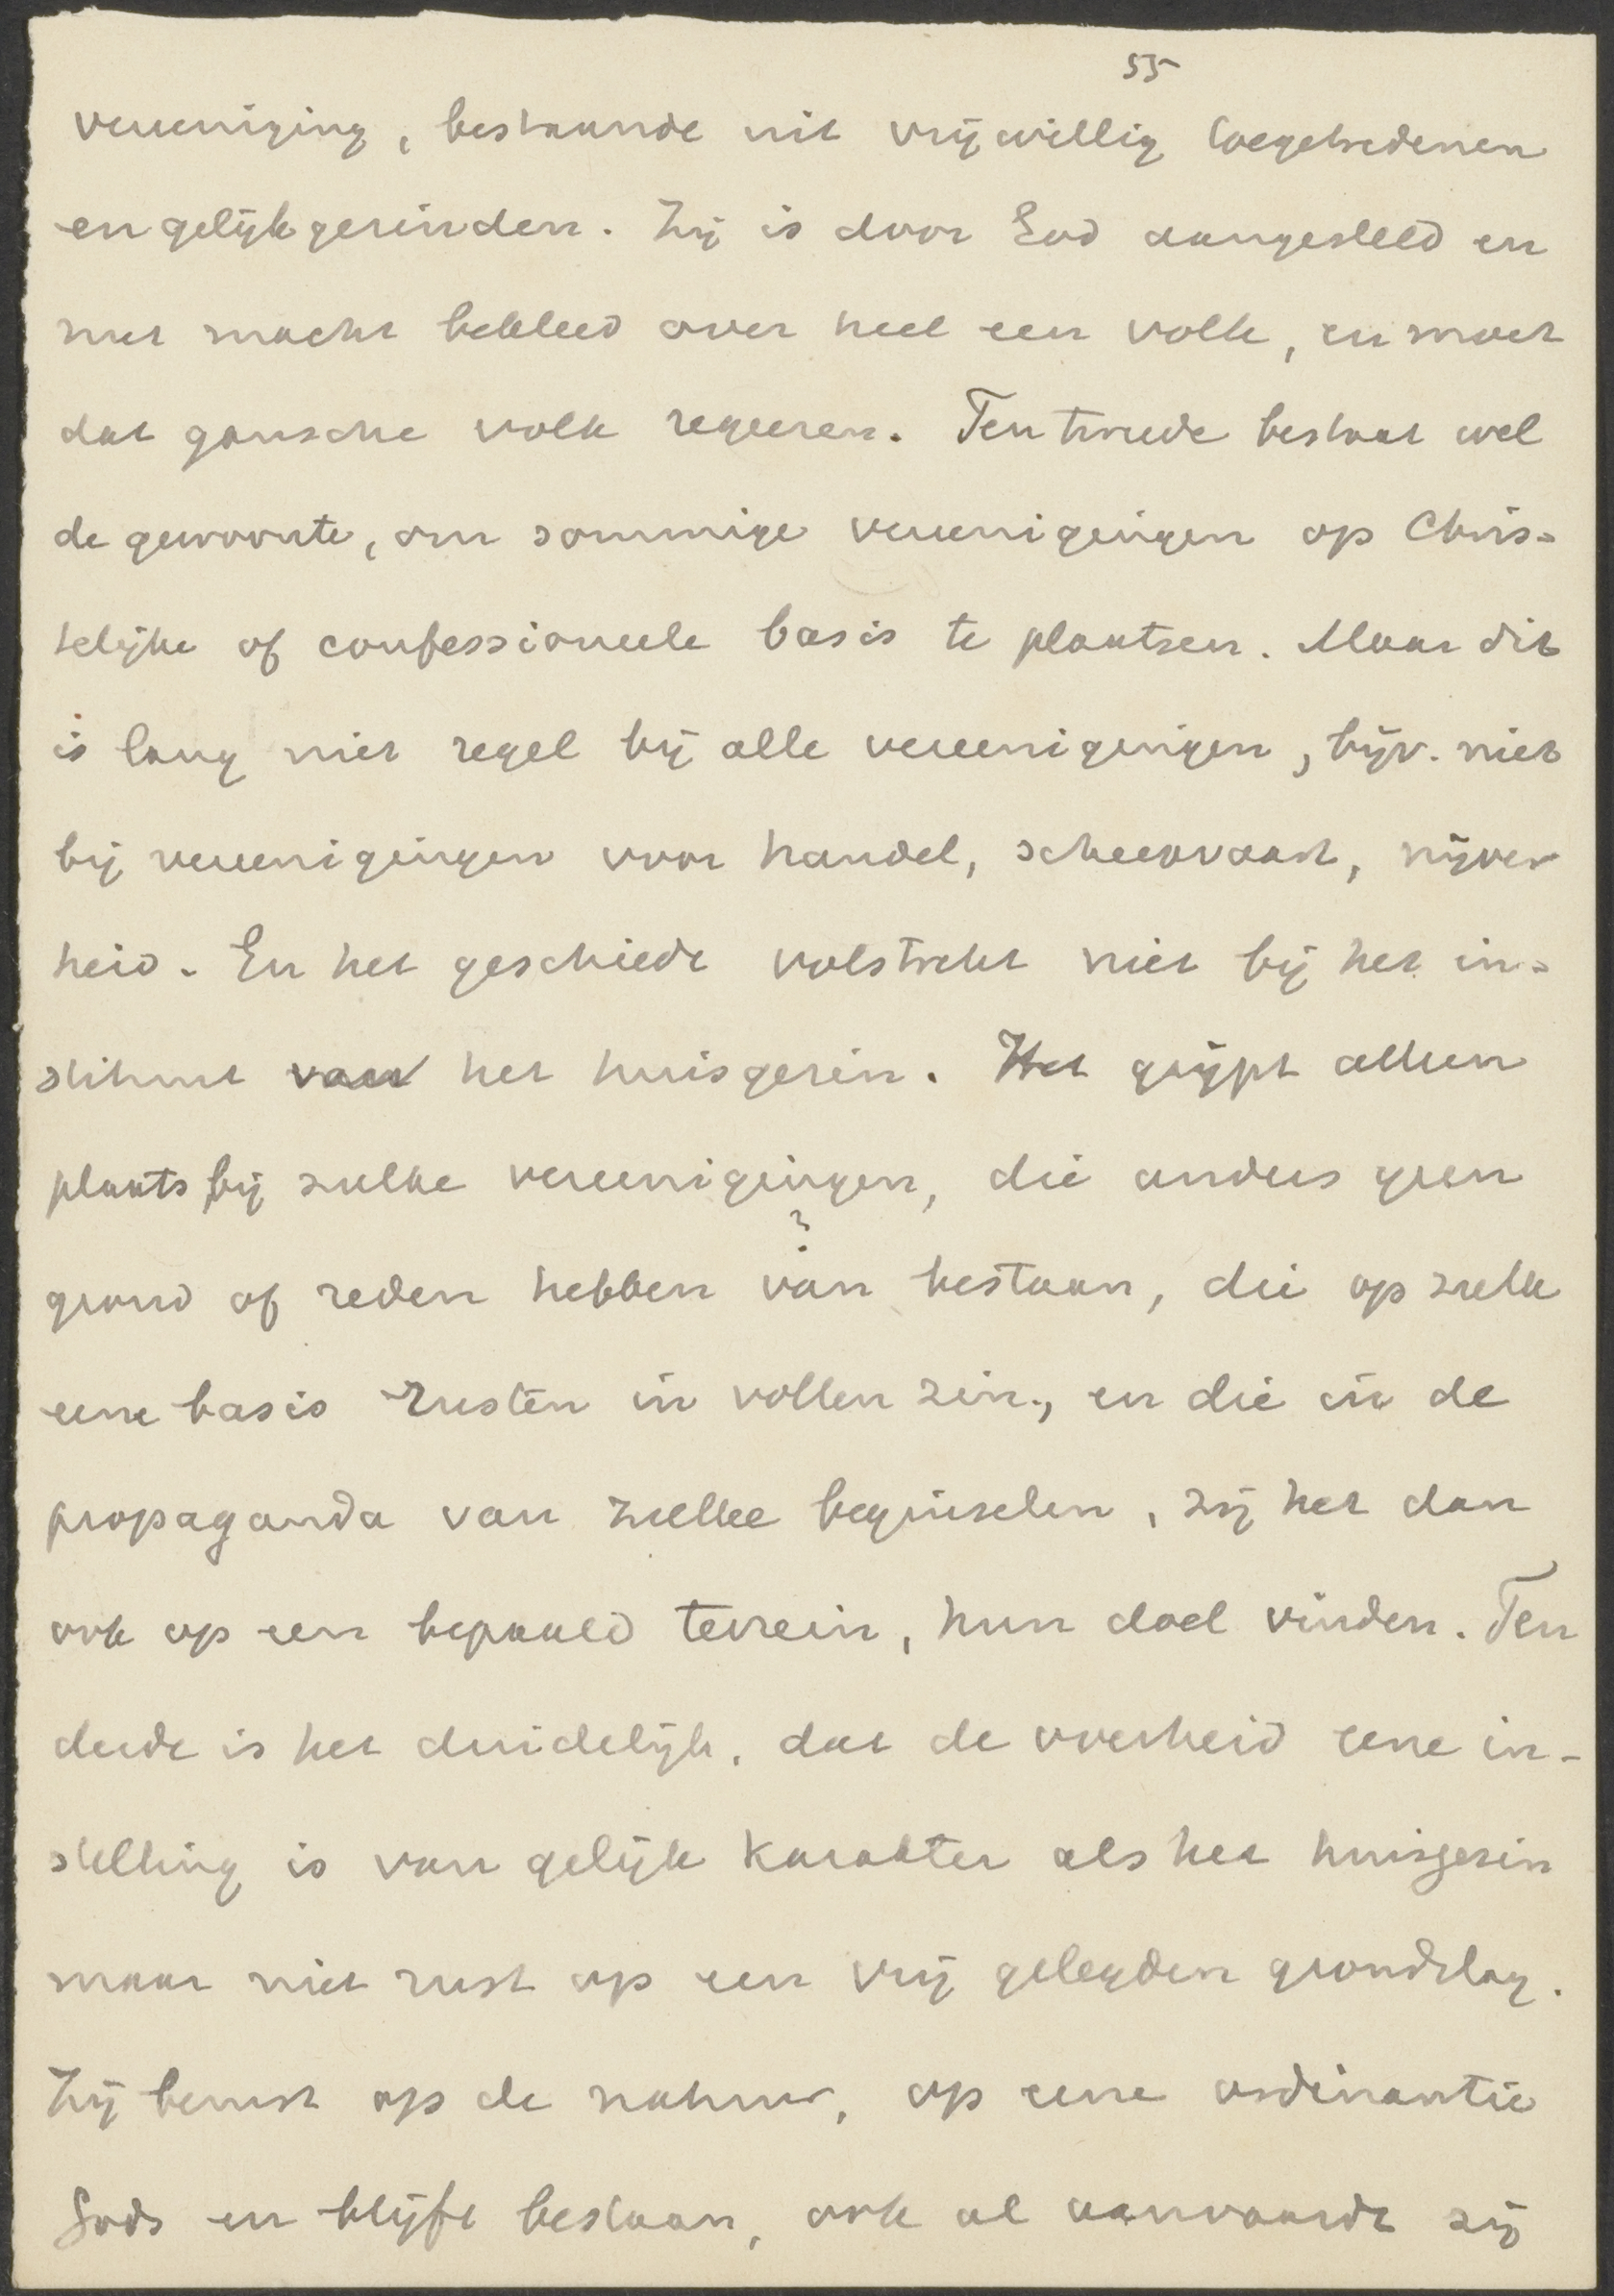 55
vereeniging, bestaande uit vrijwillig toegetredenen
en gelijkgezinden. Zij is door God aangesteld en
met macht bekleed over heel een volk, en moet
dat gansche volk regeeren. Ten tweede bestaat wel
de gewoonte, om sommige vereenigingen op Chris-
telijke of confessioneele basis te plaatsen. Maar dit
is lang niet regel bij alle vereenigingen, bijv. niet
bij vereenigingen voor handel, scheepvaart, nijver
heid. En het geschiedt volstrekt niet bij het in-
stituut van het huisgezin. Het grijpt alleen
plaats bij zulke vereenigingen, die anders geen
?
grond of reden hebben van bestaan, die op zulk
eene basis rusten in vollen zin, en die in de
propaganda van zulke beginselen, zij het dan
ook op een bepaald terrein, hun doel vinden. Ten
derde is het duidelijk, dat de overheid eene in-
stelling is van gelijk karakter als het huisgezin
maar niet rust op een vrij gelegden grondslag.
Zij berust op de natuur, op eene ordinantie
Gods en blijft bestaan, ook al aanvaardt zij